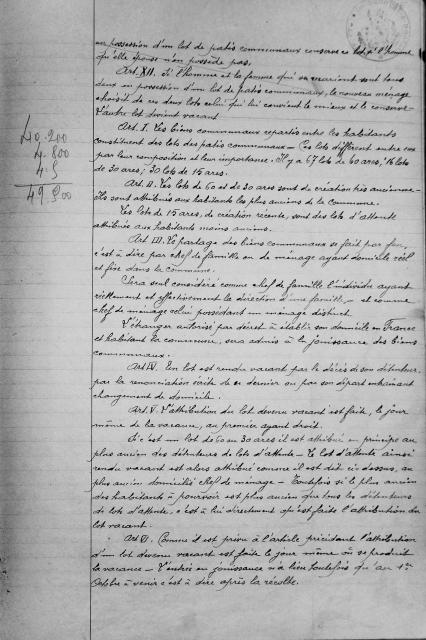 en possession d'un lot de patis communaux conserve ce lot si l'homme
qu'elle épouse n'en possède pas.
Art. XII. Si l'homme et la femme qui se marient sont tous
deux en possession d'un lot de patis communaux, le nouveau ménage
choisit de ces deux lots celui qui lui convient le mieux et le conserve
L'autre lot devient vacant
Art. I. Les biens communaux repartis entre les habitants
constituent des lots des patis communaux - Ces lots diffèrent entre eux
par leur composition et leur importance. Il y a 67 lots de 60 ares, 16 lots
de 30 ares; 30 lots de 15 ares.
Art. II. Les lots de 60 et 30 ares sont de création très ancienne -
Ils sont attribués aux habitants les plus anciens de la commune.
Les lots de 15 ares, de création récente, sont des lots d'attente
attribués aux habitants moins anciens.
Art III. Le partage des biens communaux se fait par feu,
c'est à dire par chef de famille ou de ménage ayant domicile réel
et fixe dans la commune.
Sera seul considéré comme chef de famille l'individu ayant
réellement et effectivement la direction d'une famille, et comme
chef de ménage celui possédant un ménage distinct.
L'étranger autorisé par décret à établir son domicile en France
et habitant la commune, sera admis à la jouissance des biens
communaux.
Art IV. Un lot est rendu vacant par le décès de son détenteur,
par la renonciation écrite de ce dernier ou par son départ entraînant
changement de domicile.
Art. V. L'attribution du lot devenu vacant est faite, le jour
même de la vacance, au premier ayant droit.
Si c'est un lot de 60 ou 30 ares il est attribué en principe au
plus ancien des détenteurs de lots d'attente - Le lot d'attente ainsi
rendu vacant est alors attribué comme il est dit ci dessus, au
plus ancien domicilié chef de ménage - Toutefois si le plus ancien
des habitants à pourvoir est plus ancien que tous les détenteurs
de lots d'attente, c'est à lui directement qu'est faite l'attribution du
lot vacant.
Art. VI. Comme il est prévu à l'article précédent l'attribution
d'un lot devenu vacant est faite le jour même où se produit
la vacance - L'entrée en jouissance n'a lieu toutefois qu'au 1er
Octobre à venir c'est à dire après la récolte.
40.200
4.800
4.5
49.500